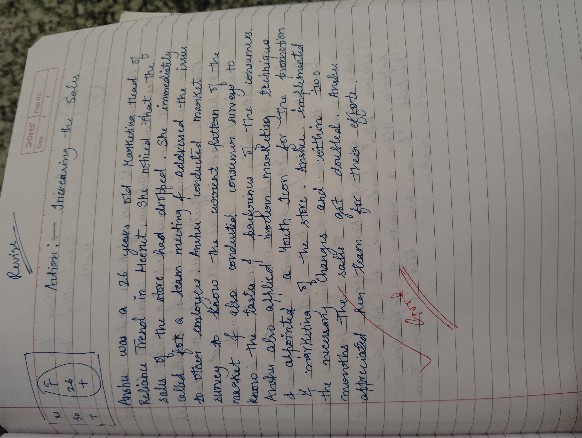 Revise
Action :- Increasing the Sales
F
26
+
Anshu was a 26 years old Marketing Head of
Reliance Trend in Meerut. She noticed that the
sales of the store had dropped. She immediately
called for a team meeting & addressed the issue
to other employees. Anshu conducted market
survey to know the current pattern of the
market & also conducted consumer surveys to
know the taste & of the consumers.
Anshu also applied modern marketing technique
& appointed a Youth Icon for the promotion
& marketing of the store. Anshu implemented
the necessary changes and within two
months the sales got doubled. Anshu
appreciated her team for their efforts.